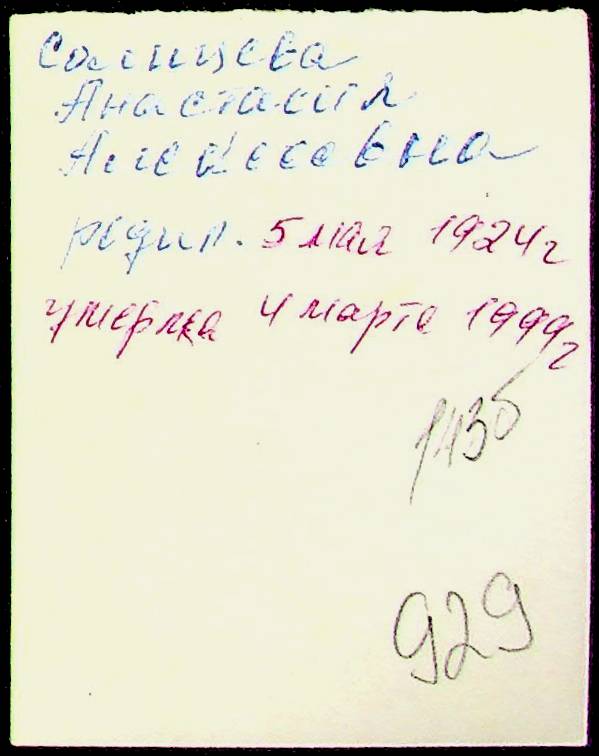 Солнцева
Анастасия
Алексеевна
родил. 5 мая 1924г
умерла 4 марта 1999г
929